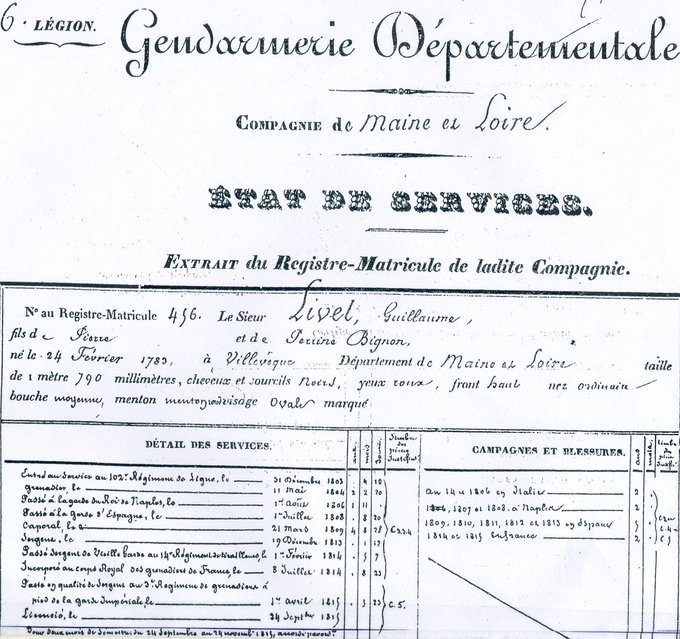 6. LÉGION.
Gendarmerie Départementale
COMPAGNIE de Maine et Loire.
ÉTAT DE SERVICES.
EXTRAIT du Registre-Matricule de ladite Compagnie.
N° au Registre-Matricule 456. Le Sieur Livel, Guillaume,
fils de Pierre et de Perrine Bignon,
né le 24 Février 1783, à Villevêque Département de Maine et Loire taille
de 1 mètre 790 millimètres, cheveux et sourcils Noirs, yeux roux, front haut nez ordinaire
bouche moyenne, menton visage Ovale marqué
DÉTAIL DES SERVICES.
ans. mois jours
CAMPAGNES ET BLESSURES.
ans mois.
Entré au service au 102e Régiment de Ligne, le 31 Décembre 1803 . 4 10
grenadier, le 11 Mai 1804 2 2 20
Passé à la garde du Roi de Naples, le 1er août 1806 1 11 .
Passé à la Garde d'Espagne, le 1er Juillet 1808 . 8 20
Caporal, le 21 Mars 1809 4 8 28
Sergent, le 19 Décembre 1813 . 1 12
Passé Sergent de Vieille Garde au 14e Régiment de tirailleurs, le 1er Février 1814 . 5 7
Incorporé au corps Royal des grenadiers de France, le 8 Juillet 1814 . 8 23
Passé en qualité de Sergent au 3e Régiment de grenadiers à
pied de la garde Impériale, le 1er avril 1815 . 5 23 C.5.
Licencié, le 24 Septbre 1815
Pour deux mois de semestre du 24 Septembre au 24 novembre 1815,
an 14 et 1806 en Italie 2
1807 et 1808, à Naples 2
1809, 1810, 1811, 1812 et 1813 en Espagne 5
1814 et 1815 en france 2